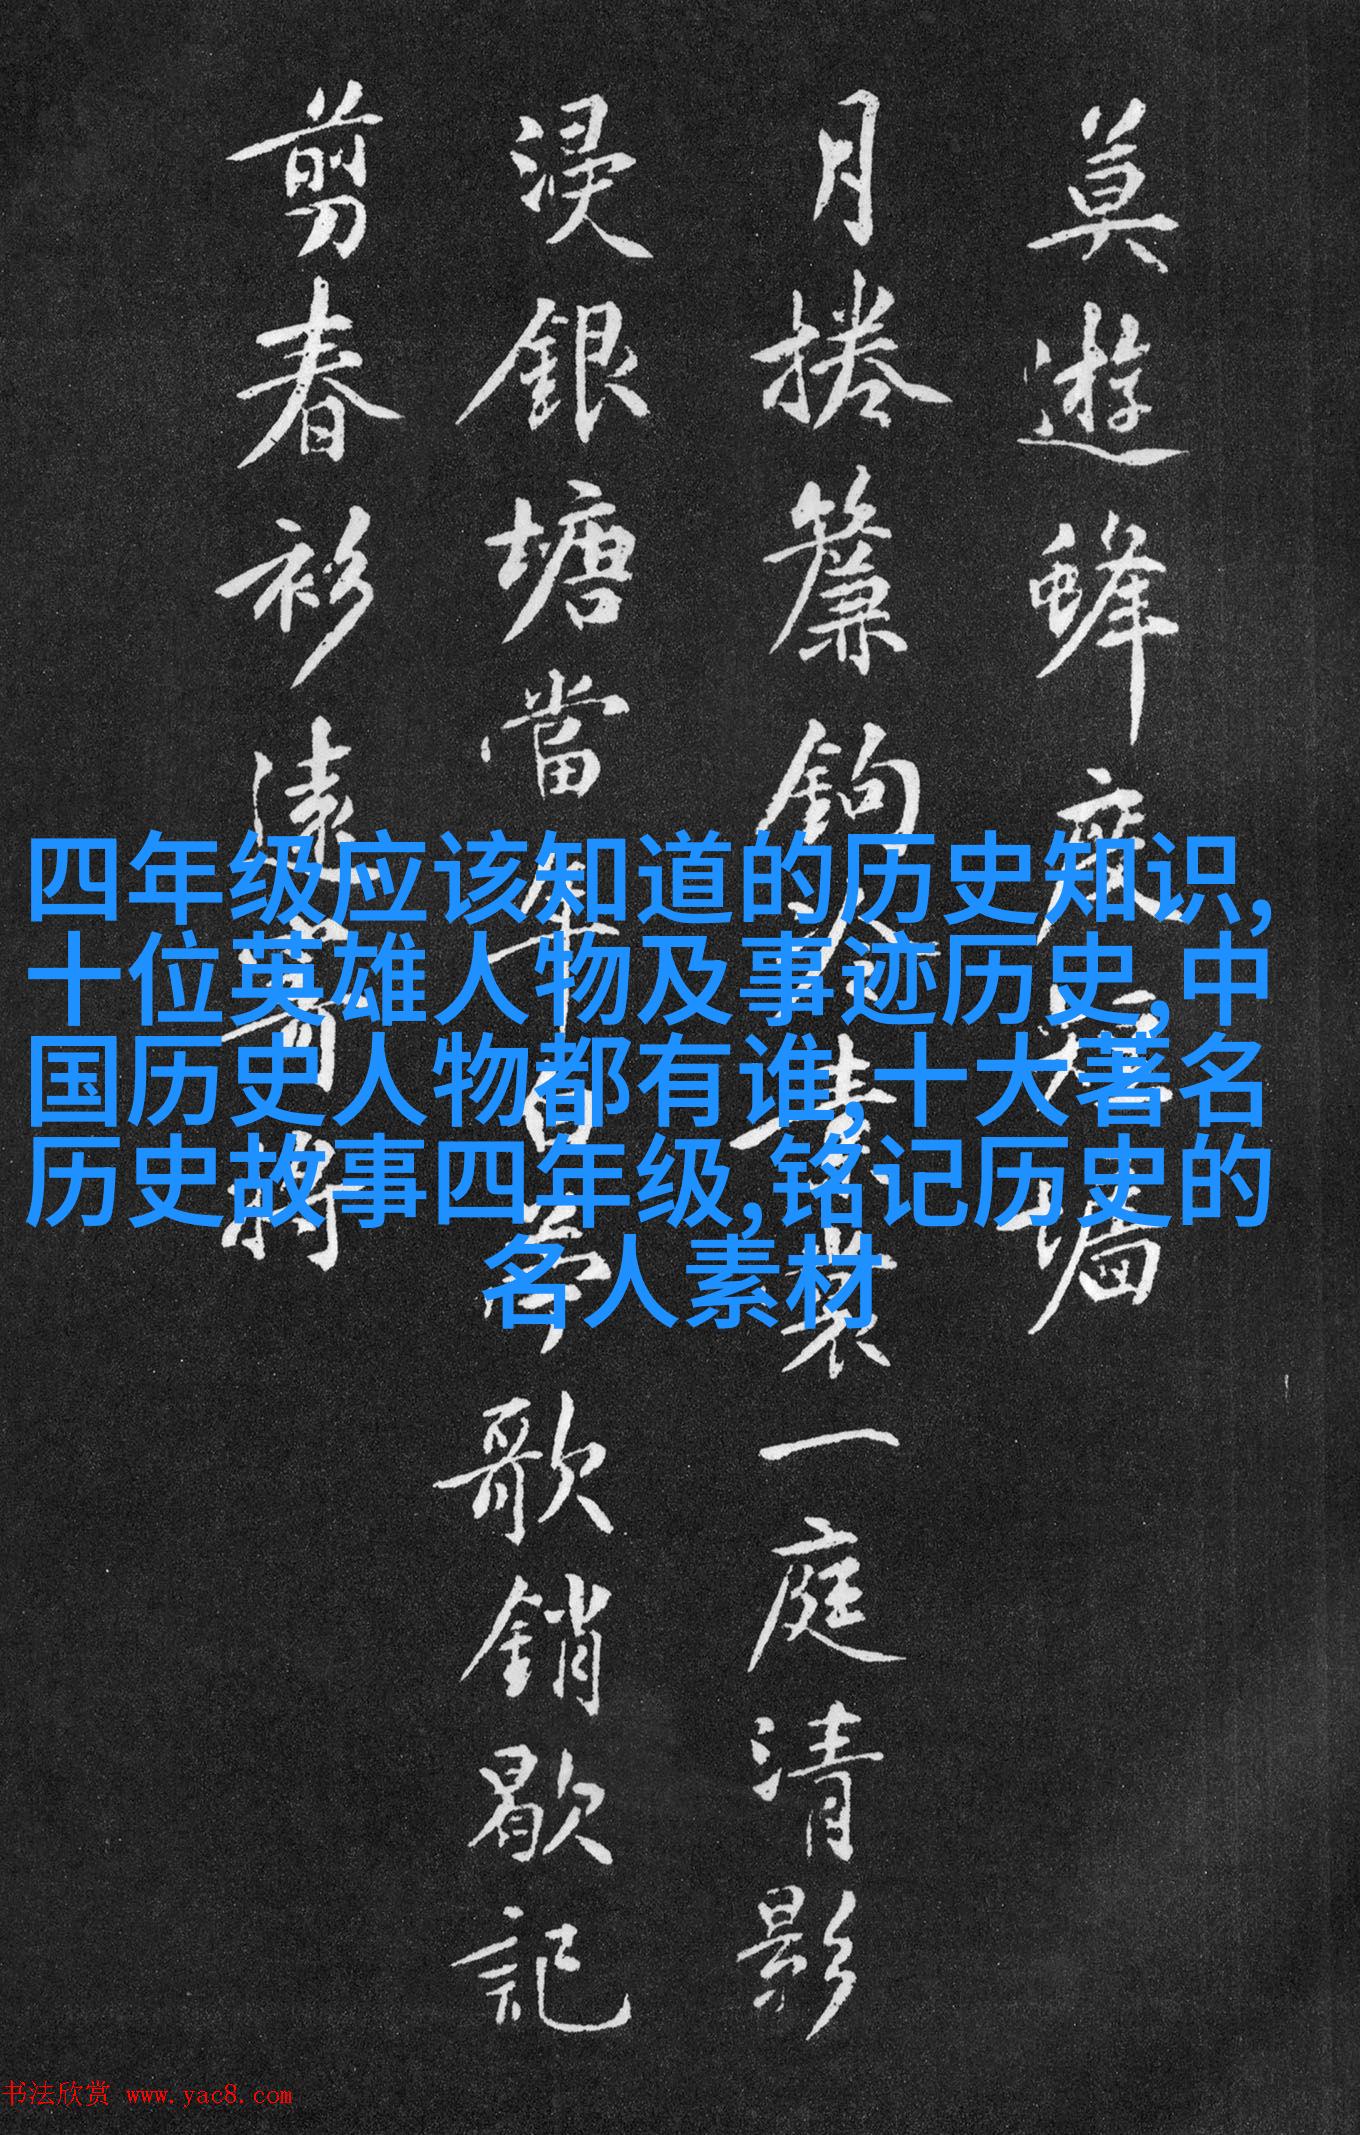 莫遊蜂度短墻
月捲簾鉤人靜裳一庭清影
浸銀塘當年白苧歌銷歇記
剪春衫遠寄將
四年级应该知道的历史知识,
十位英雄人物及事迹历史,中
国历史人物都有谁,十大著名
历史故事四年级,铭记历史的
名人素材
书法欣赏 www.yac8.com